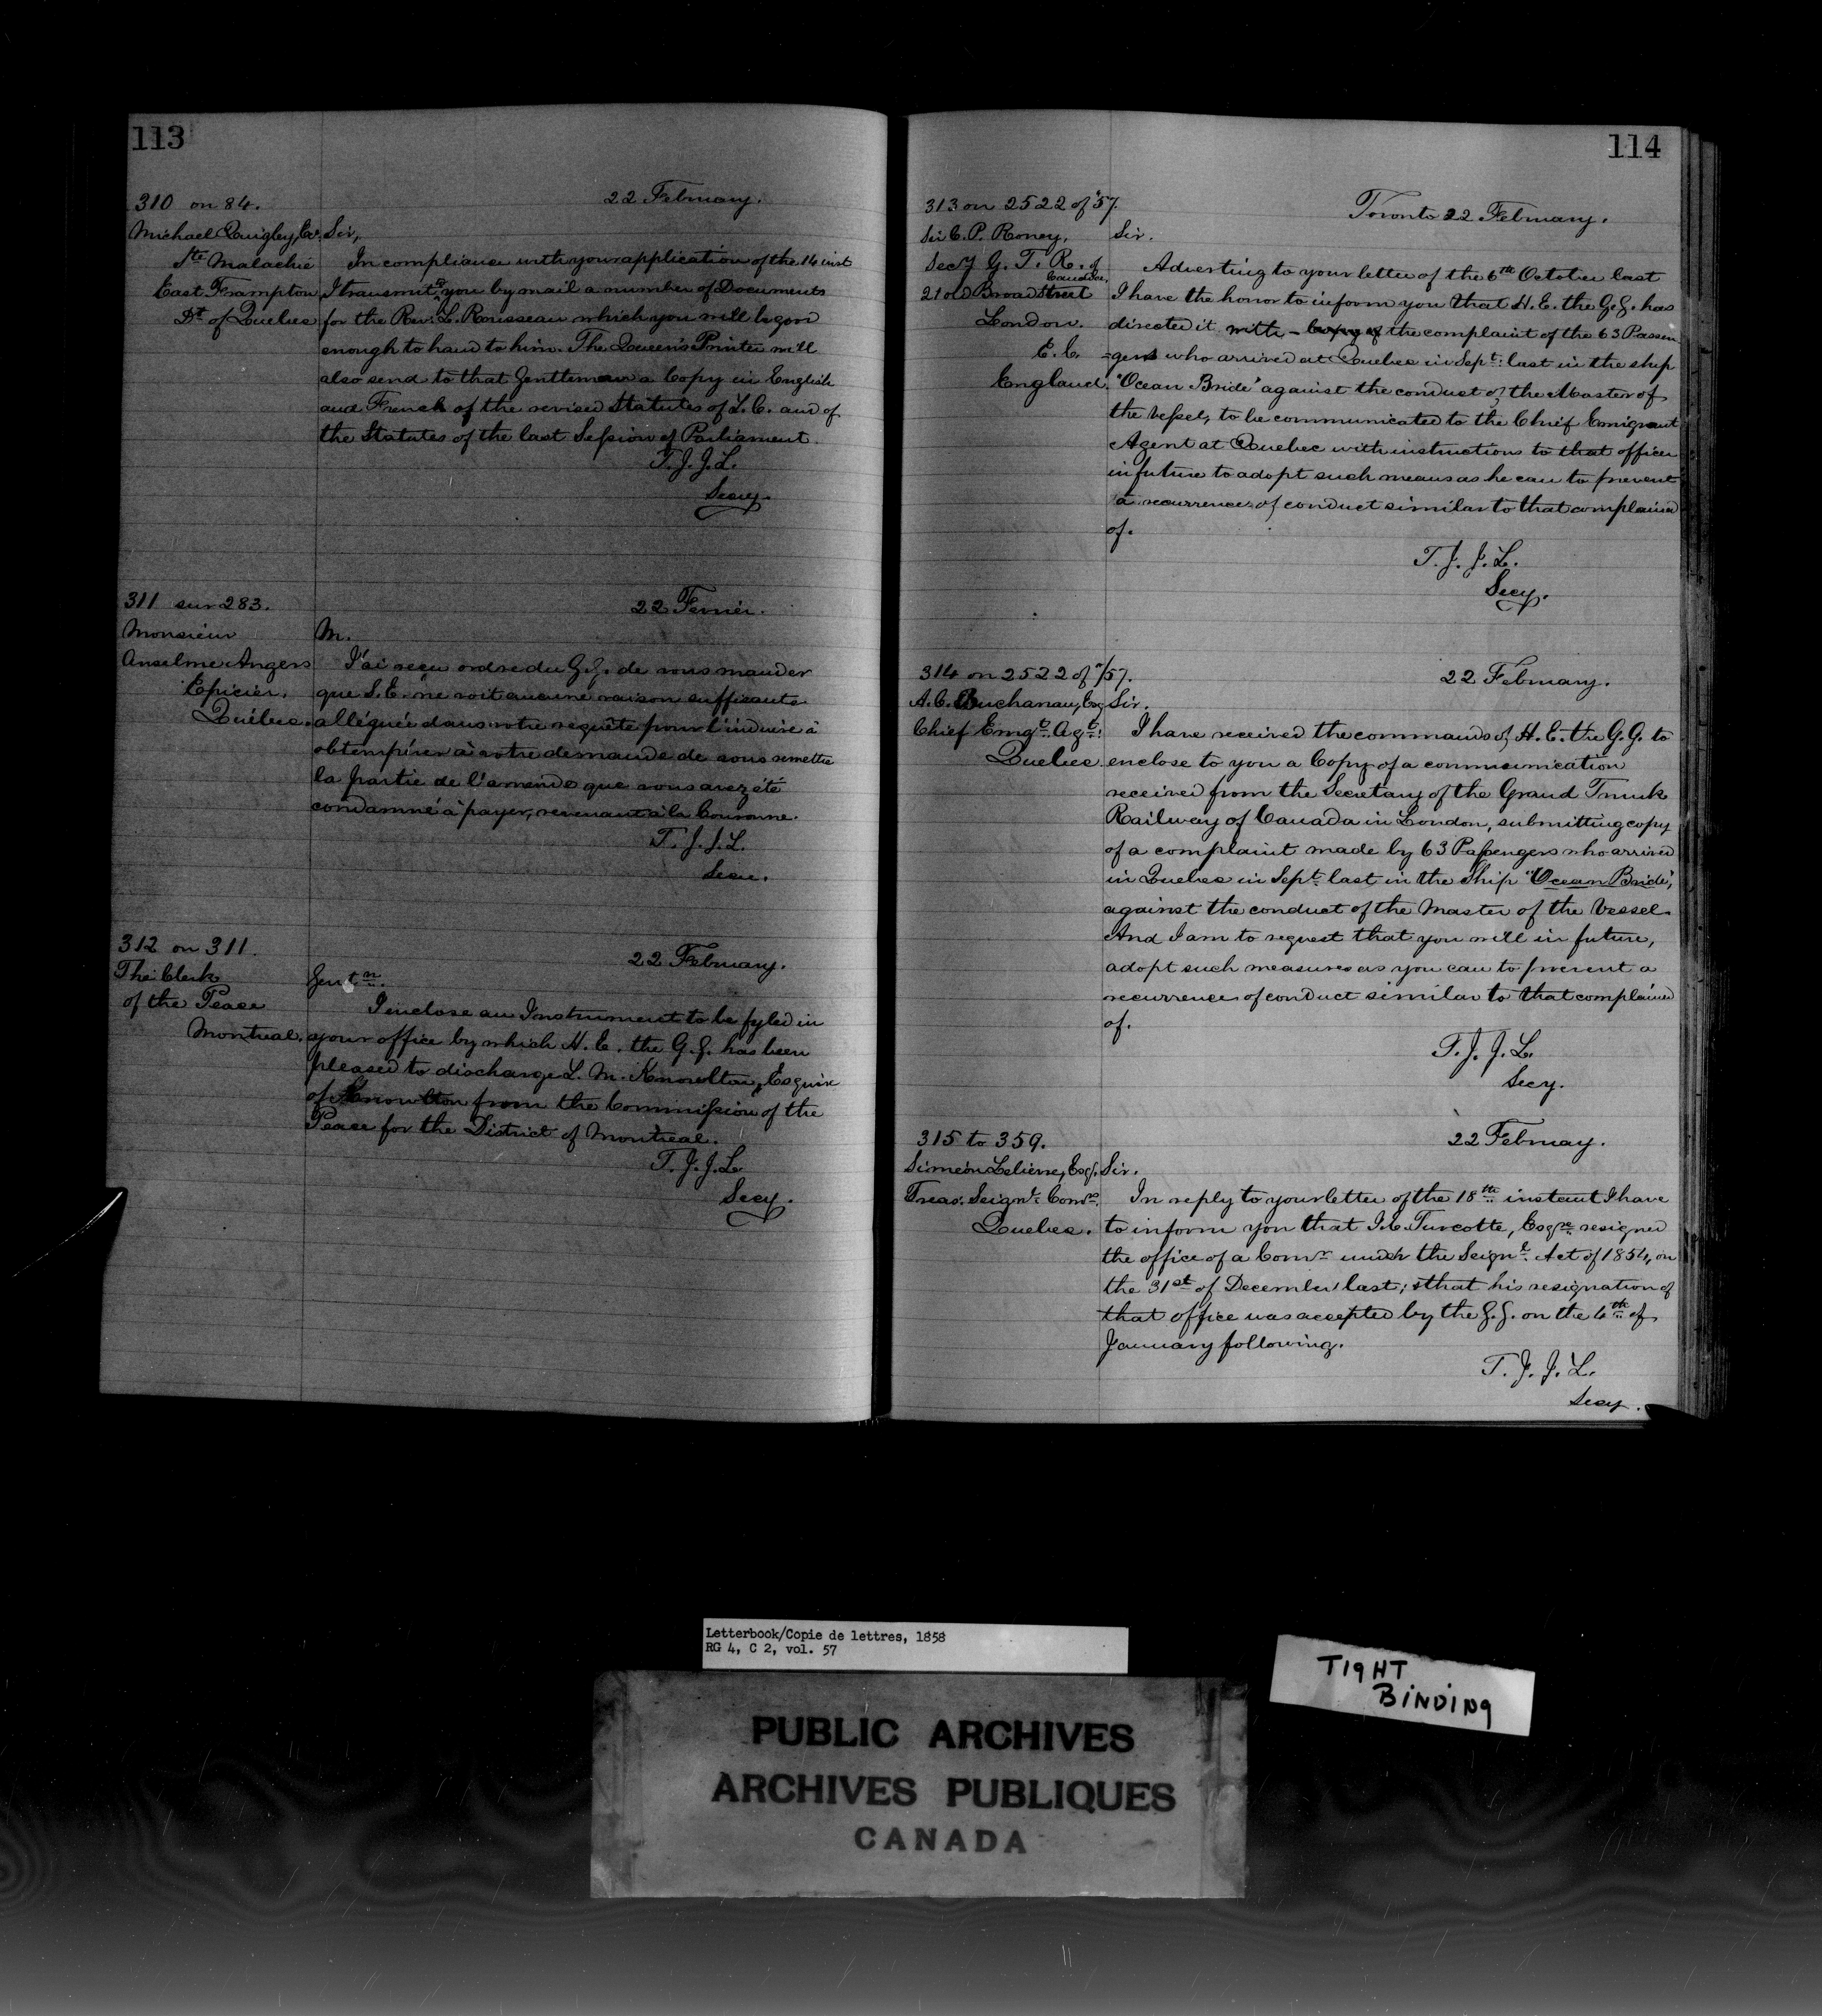 113
310 on 84.
22 February.
Michael Quigley, Esq.
Sir,
Ste Malachie
East Frampton
Dt of Quebec
In compliance with your application of the 14 inst
I transmit to you by mail a number of Documents
for the Rev: L. Rousseau which you will be good
enough to hand to him. The Queen's Printer will
also send to that Gentleman a Copy in English
and French of the revised Statutes of L. C. and of
the Statutes of the last Session of Parliament.
T. J. J. L.
Secy.
311 sur 283.
22 Fevrier.
Monsieur
Anselme Angers
Epicier.
Québec.
M.
J'ai reçu ordre du G. G. de vous mander
que S. E. ne voit aucune raison suffisante
alléguée dans votre requête pour l'induire à
obtempérer à votre demande de vous remettre
la partie de l'amende que vous avez été
condamné à payer, revenant à la Couronne.
T. J. J. L.
Secre.
312 on 311.
22 February.
The Clerk
of the Peace
Montreal.
Gentn.
I inclose an Instrument to be fyled in
your office by which H. E. the G. G. has been
pleased to discharge L. M. Knowlton, Esquire
of Knowlton from the Commission of the
Peace for the District of Montreal.
T. J. J. L.
Secy.
114
313 on 2522 of '57.
Toronto 22 February.
Sir C. P. Roney,
Secy G. T. R. of
Canada,
21 Old Broad Street
London.
E. C.
England.
Sir.
Adverting to your letter of the 6th October last
I have the honor to inform you that H. E. the G. G. has
directed it with - copy of the complaint of the 63 Passen
-gers who arrived at Quebec in Sept: last in the ship
"Ocean Bride" against the conduct of the Master of
the Vessel, to be communicated to the Chief Emigrant
Agent at Quebec with instructions to that officer
in future to adopt such means as he can to prevent
a recurrence of conduct similar to that complained
of.
T. J. J. L.
Secy.
314 on 2522 of "/57.
22 February.
A. C. Buchanan, Esq
Chief Emgt. Agt:
Quebec.
Sir.
I have received the commands of H. E. the G. G. to
enclose to you a Copy of a communication
received from the Secretary of the Grand Trunk
Railway of Canada in London, submitting copy
of a complaint made by 63 Passengers who arrived
in Quebec in Sept. last in the Ship "Ocean Bride",
against the conduct of the Master of the Vessel.
And I am to request that you will in future,
adopt such measures as you can to prevent a
recurrence of conduct similar to that complained
of.
T. J. J. L.
Secy.
315 to 359.
22 Februay.
Siméon Lelièvre, Esq.
Treas: Seignl: Comn.
Quebec.
Sir.
In reply to your letter of the 18th instant I have
to inform you that J. E. Turcotte, Esqre resigned
the office of a Comr under the Seignl. Act of 1854, on
the 31st of December last; & that his resignation of
that office was accepted by the G. G. on the 6th of
January following.
T. J. J. L.
Secy.
Letterbook/Copie de lettres, 1858
RG 4, C 2, vol. 57
TIGHT
BINDING
PUBLIC ARCHIVES
ARCHIVES PUBLIQUES
CANADA